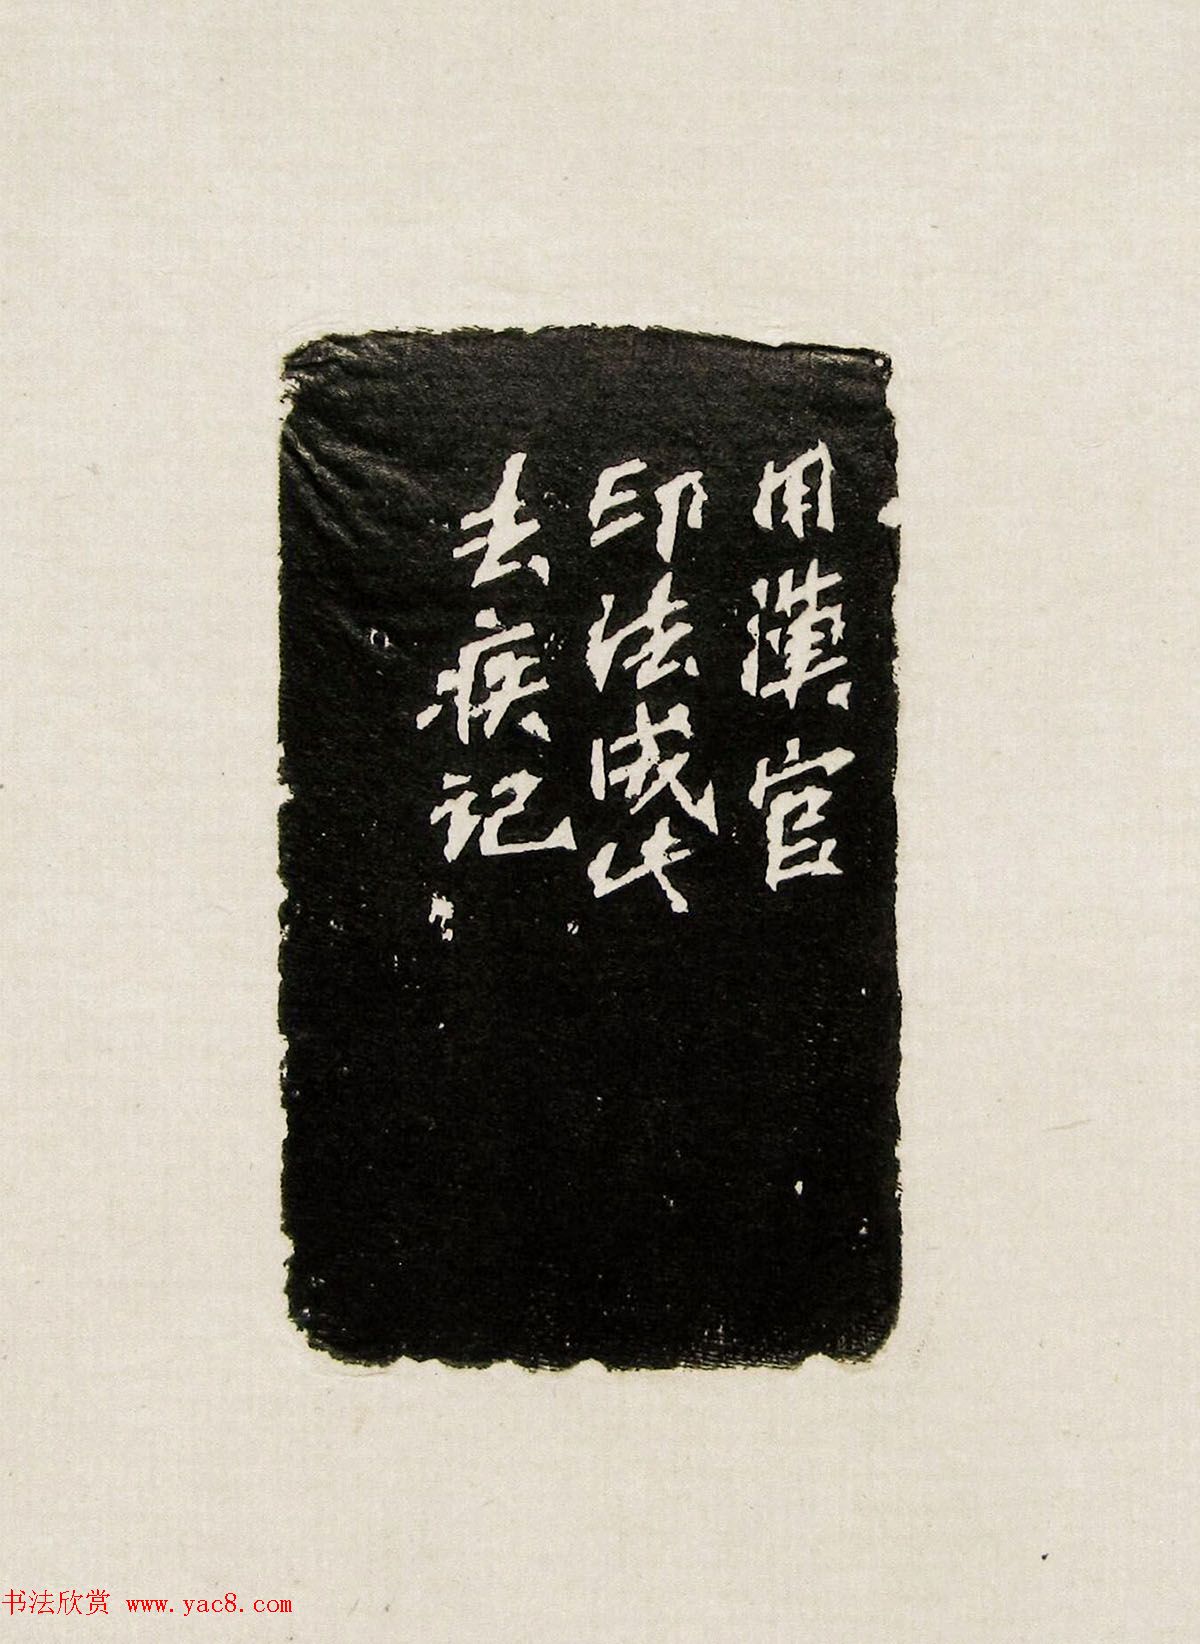 用漢官
印法成此
去疾记
书法欣赏 www.yac8.com